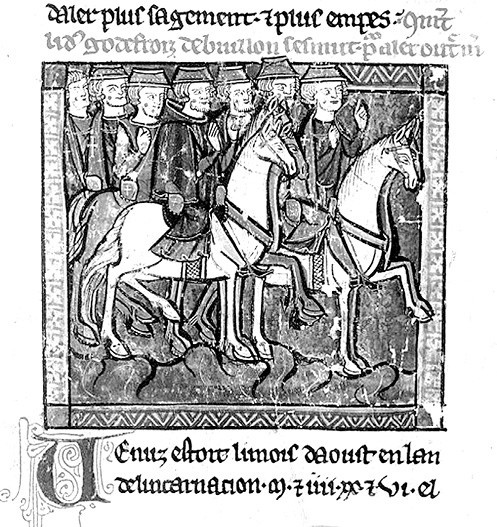 daler plus sagement· ⁊ plus empes·
godefroiz de buillon sesmut· aler
Uenuz estoit li mois daoust en lan
de lincarnacion· m· ⁊ iiii· xx ⁊ vi· el